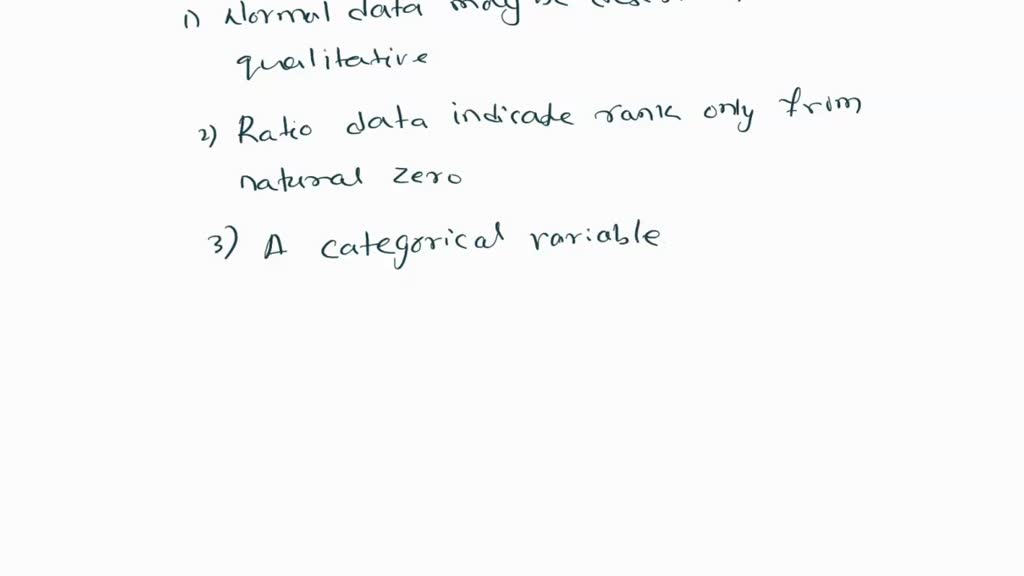 1) Normal data may be
qualitative
2) Ratio data indicate rank only from
natural zero
3) A categorical variable